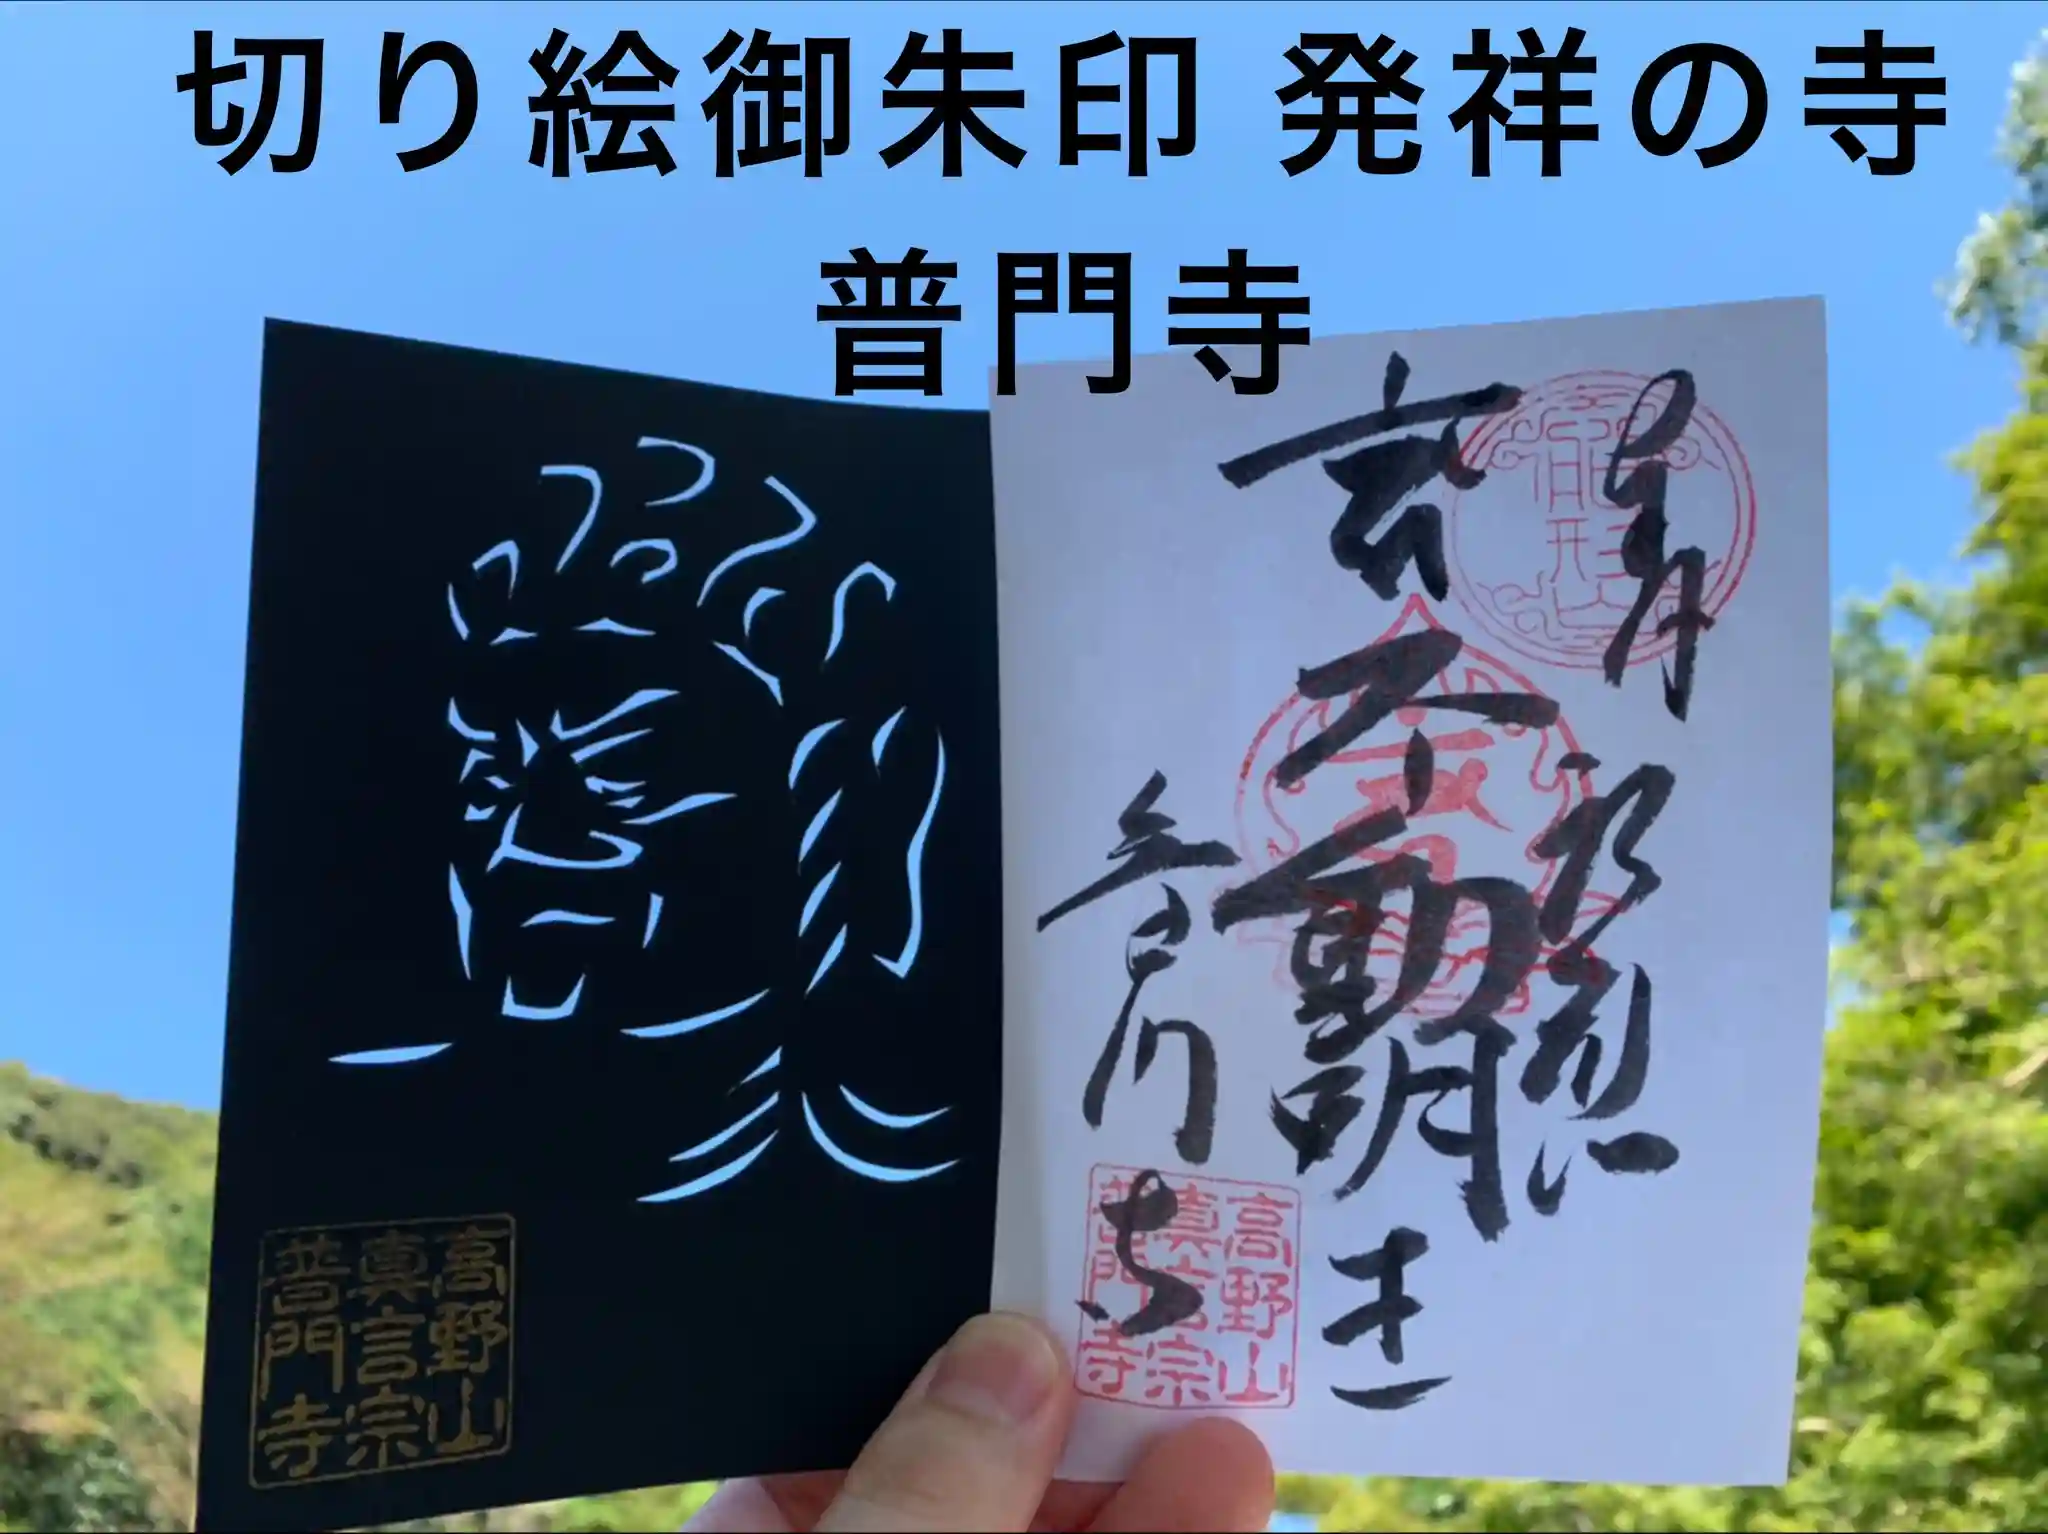 切り絵御朱印 発祥の寺
普門寺
高野山
真言宗
普門寺
不動明王
普門寺
高野山
真言宗
普門寺